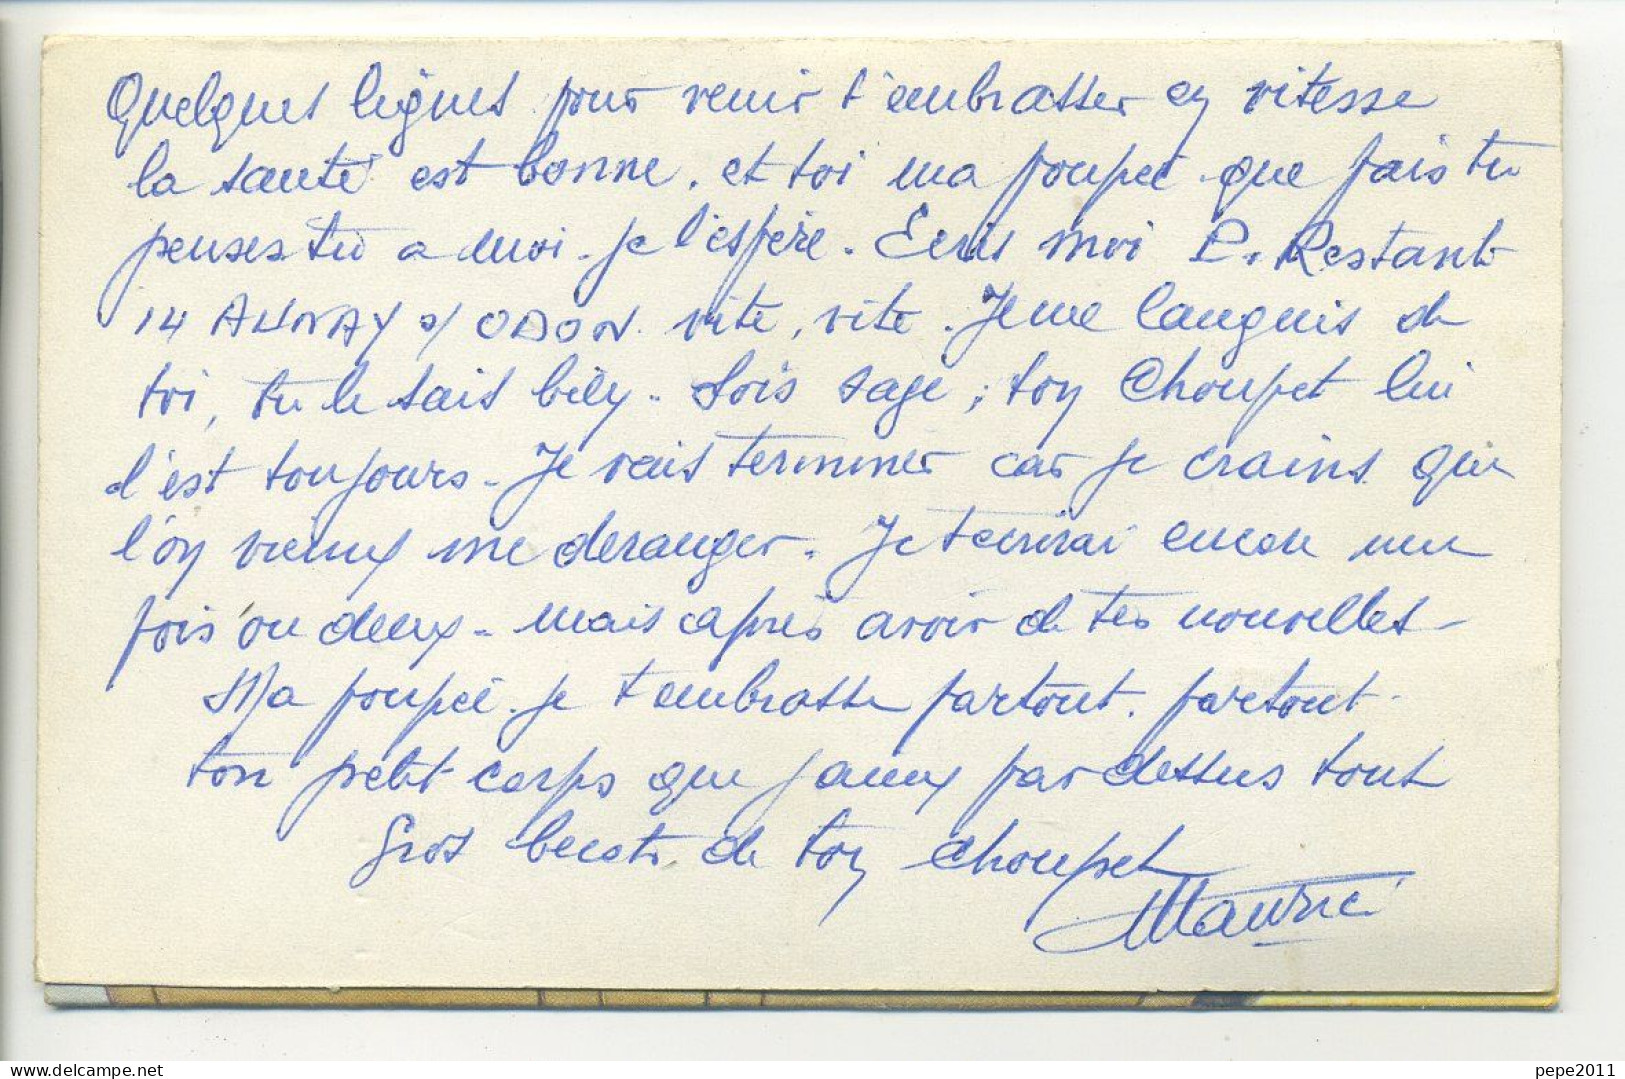 Quelques lignes pour venir t'embrasser en vitesse
la santé est bonne. et toi ma poupée que fais tu
penses tu a moi. je l'espère. Ecris moi P. Restante
14 AUNAY s/ ODON. vite, vite. Je me languis de
toi, tu le sais bien. Sois sage ; ton Choupet lui
l'est toujours. Je vais terminer car je crains que
l'on vienne me deranger. Je t'ecrirai encore une
fois ou deux. mais après avoir de tes nouvelles
Ma poupée. je t'embrasse partout. partout.
ton petit corps que j'aime par dessus tout
Gros becots de ton choupet
Maurice
pepe2011